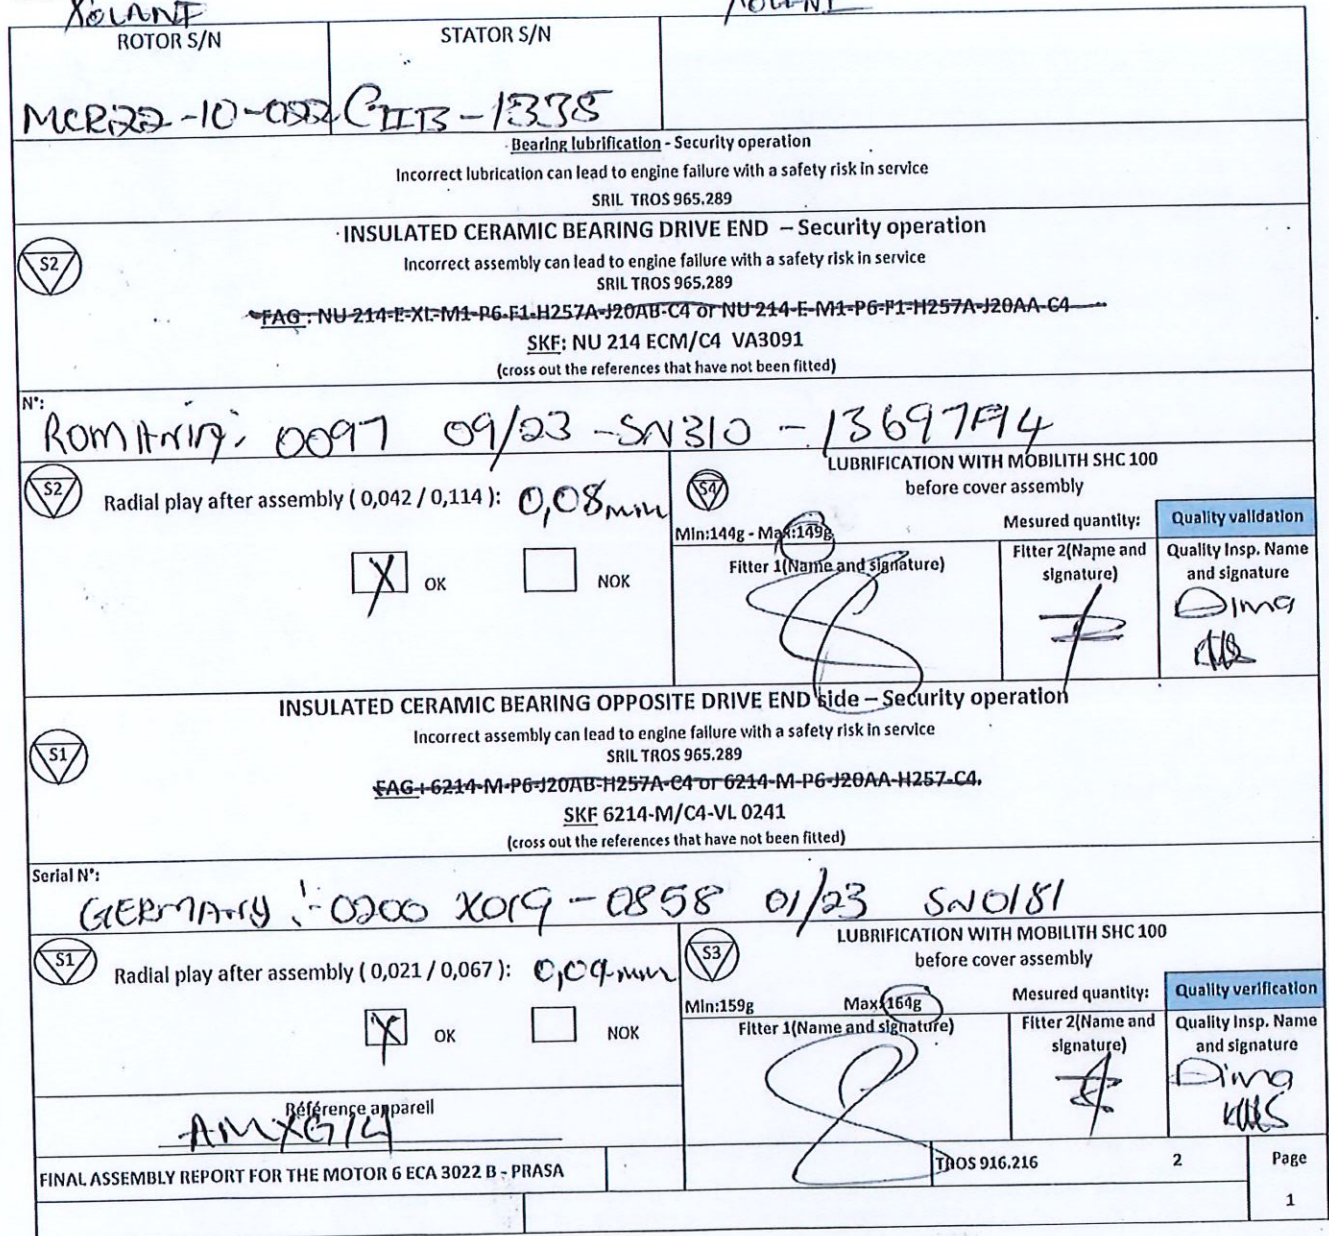 XOLANI
ROTOR S/N
STATOR S/N
CIIB-1335
Bearing lubrification - Security operation
Incorrect lubrication can lead to engine failure with a safety risk in service
SRIL TROS 965.289
S2
INSULATED CERAMIC BEARING DRIVE END – Security operation
Incorrect assembly can lead to engine failure with a safety risk in service
SRIL TROS 965.289
FAG : NU 214-E-XL-M1-P6-F1-H257A-J20AB-C4 or NU 214-E-M1-P6-F1-H257A-J20AA-C4
SKF: NU 214 ECM/C4 VA3091
(cross out the references that have not been fitted)
N°:
ROMANIA: 0097 09/23 -SN310 - 13697A4
S2
Radial play after assembly ( 0,042 / 0,114 ): 0,08mm
OK
NOK
S4
LUBRIFICATION WITH MOBILITH SHC 100
before cover assembly
Min:144g - Max:149g
Mesured quantity:
Quality validation
Fitter 1(Name and signature)
Fitter 2(Name and signature)
Quality Insp. Name and signature
Dima
INSULATED CERAMIC BEARING OPPOSITE DRIVE END side – Security operation
S1
Incorrect assembly can lead to engine failure with a safety risk in service
SRIL TROS 965.289
FAG : 6214-M-P6-J20AB-H257A-C4 or 6214-M-P6-J20AA-H257-C4.
SKF 6214-M/C4-VL 0241
(cross out the references that have not been fitted)
Serial N°:
GERMANY :- 0200 X019 - 0858 01/23 SN0181
S1
Radial play after assembly ( 0,021 / 0,067 ): 0,04mm
OK
NOK
S3
LUBRIFICATION WITH MOBILITH SHC 100
before cover assembly
Min:159g Max:164g
Mesured quantity:
Quality verification
Fitter 1(Name and signature)
Fitter 2(Name and signature)
Quality Insp. Name and signature
Dima
Référence appareil
FINAL ASSEMBLY REPORT FOR THE MOTOR 6 ECA 3022 B - PRASA
TROS 916.216
2
Page
1